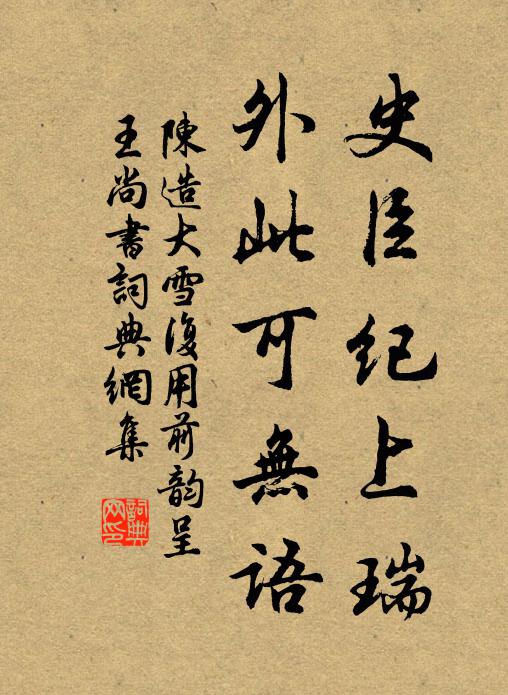 史臣纪上瑞
外此可無語
陳造大雪復用前韵呈
王尚書詞典網集
詞典
网印